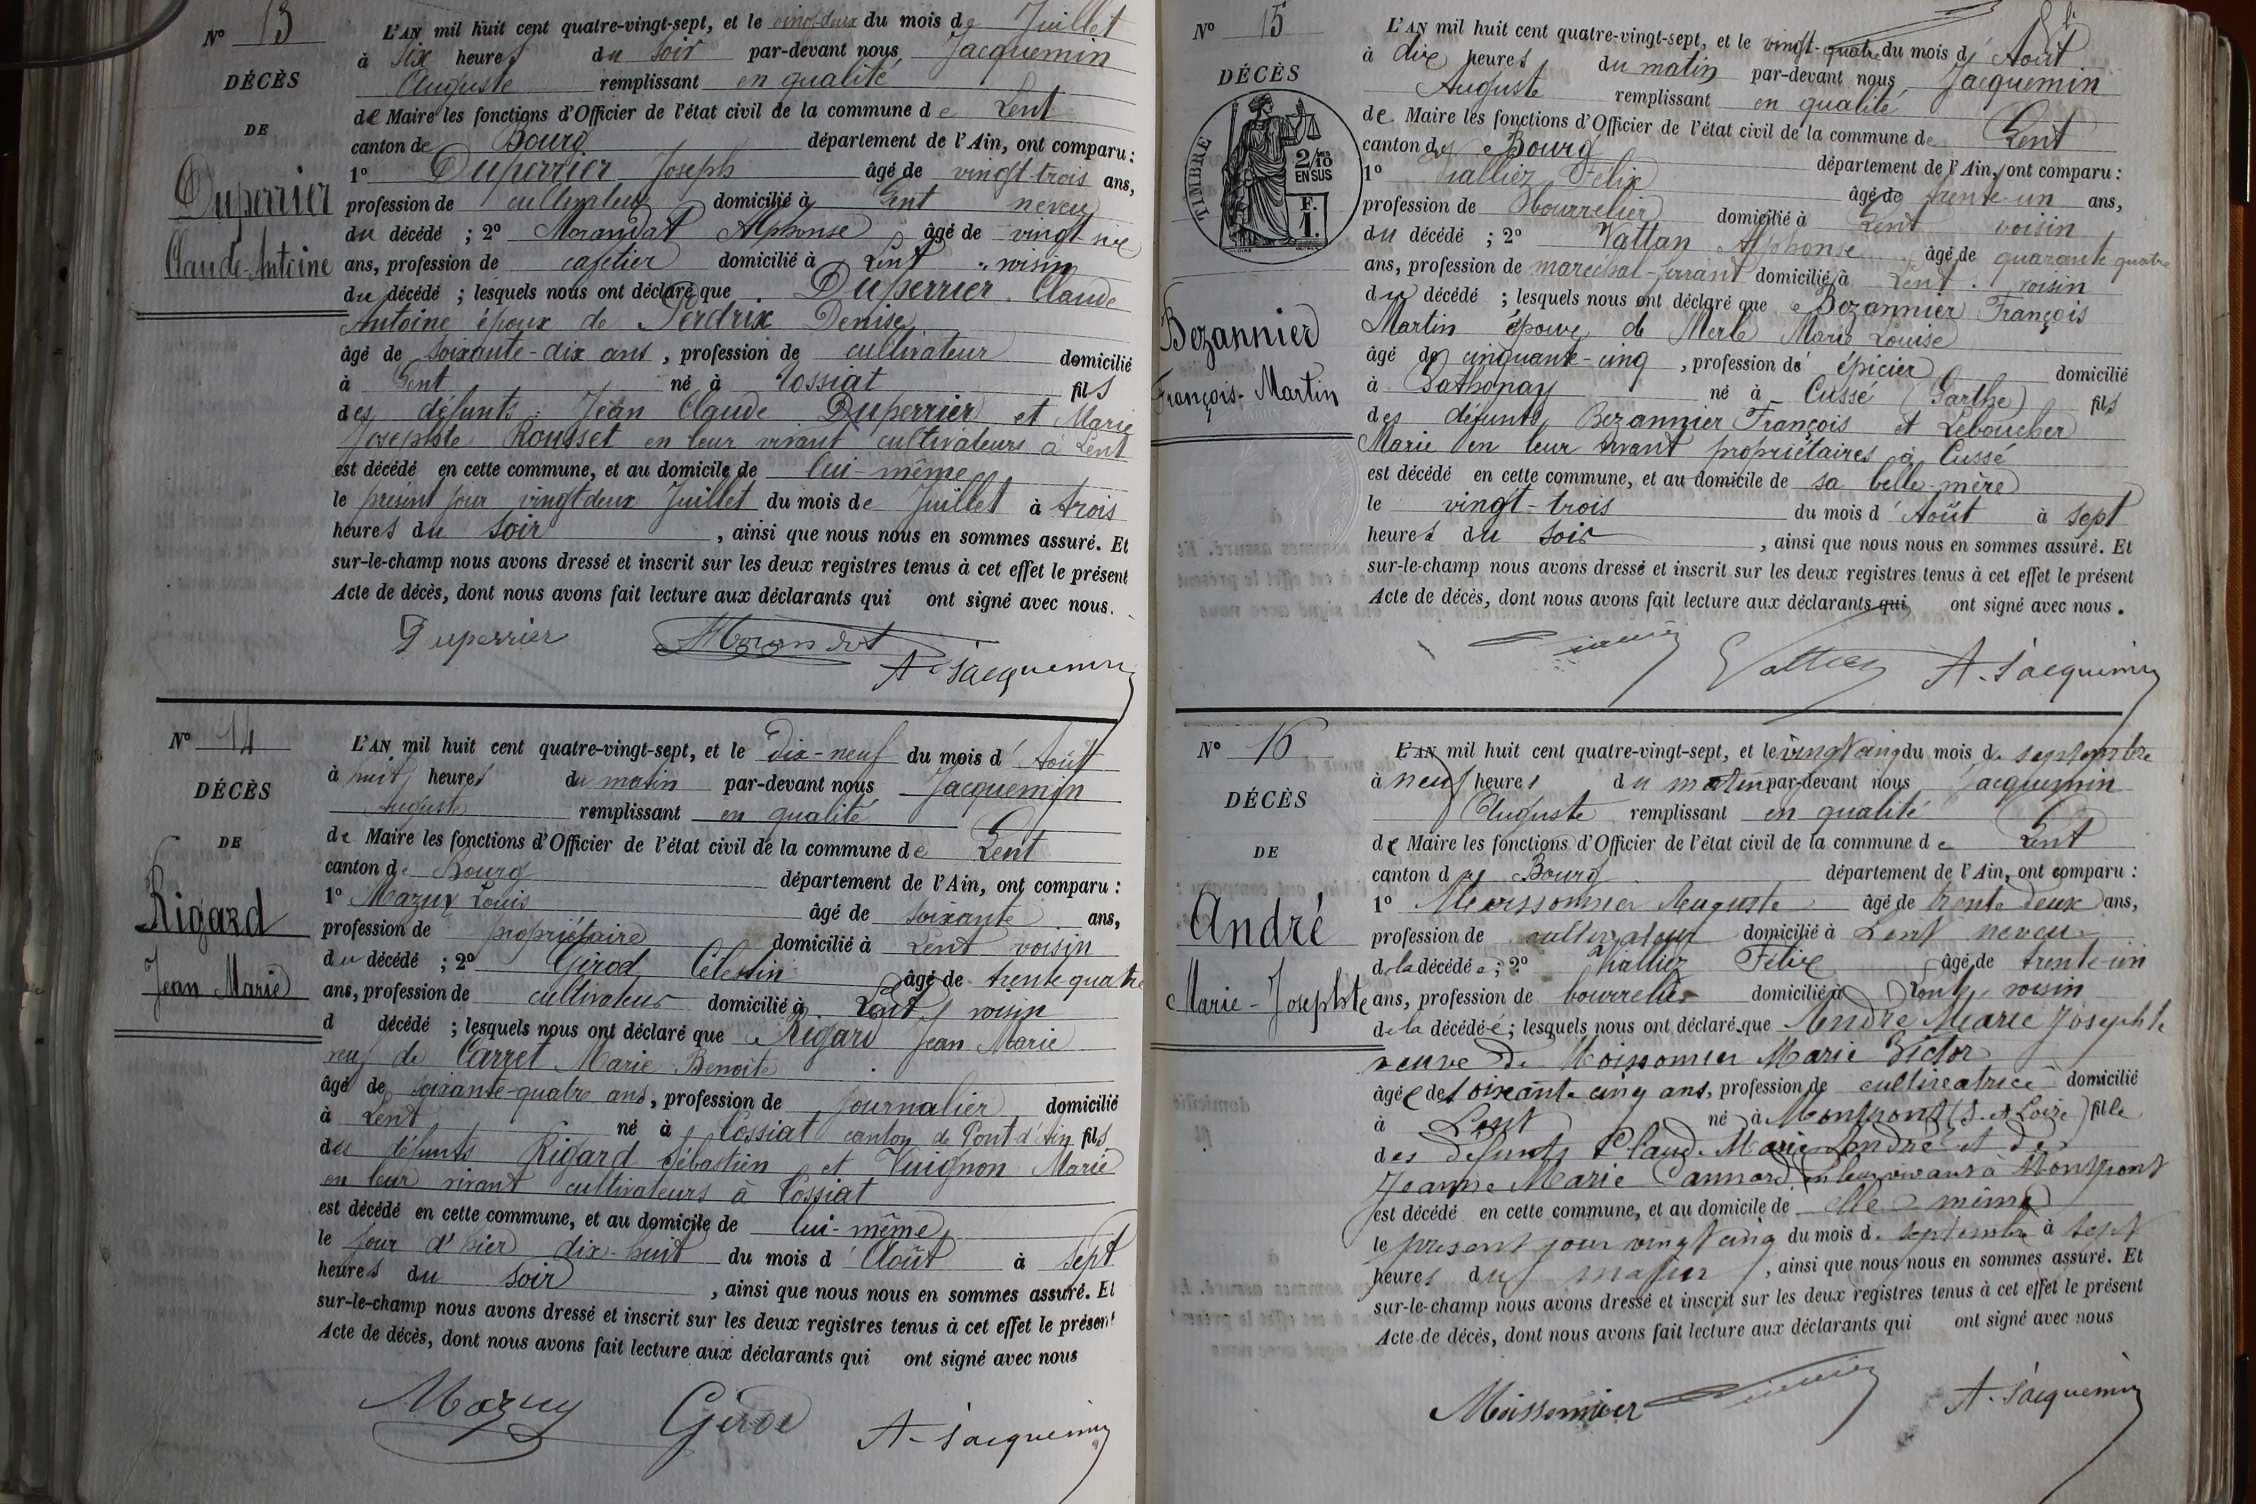 N° 13
DÉCÈS
DE
Duperrier
Claude-Antoine
L'AN mil huit cent quatre-vingt-sept, et le vingt-deux du mois de Juillet
à six heures du soir par-devant nous Jacquemin
Auguste remplissant en qualité
de Maire les fonctions d'Officier de l'état civil de la commune de Lent
canton de Bourg département de l'Ain, ont comparu :
1° Duperrier Joseph âgé de vingt-trois ans,
profession de cultivateur domicilié à Lent neveu
du décédé ; 2° Morandat Alphonse âgé de vingt six
ans, profession de cafetier domicilié à Lent voisin
du décédé ; lesquels nous ont déclaré que Duperrier Claude
Antoine époux de Perdrix Denise
âgé de soixante-dix ans, profession de cultivateur domicilié
à Lent né à Tossiat fils
des défunts Jean Claude Duperrier et Marie
Josephte Rousset en leur vivant cultivateurs à Lent
est décédé en cette commune, et au domicile de lui-même
le présent jour vingt deux Juillet du mois de Juillet à trois
heures du soir, ainsi que nous nous en sommes assuré. Et
sur-le-champ nous avons dressé et inscrit sur les deux registres tenus à cet effet le présent
Acte de décès, dont nous avons fait lecture aux déclarants qui ont signé avec nous.
Duperrier Morandat A. Jacquemin
N° 14
DÉCÈS
DE
Rigard
Jean Marie
L'AN mil huit cent quatre-vingt-sept, et le dix-neuf du mois d'Août
à huit heures du matin par-devant nous Jacquemin
Auguste remplissant en qualité
de Maire les fonctions d'Officier de l'état civil de la commune de Lent
canton de Bourg département de l'Ain, ont comparu :
1° Mazuy Louis âgé de soixante ans,
profession de propriétaire domicilié à Lent voisin
du décédé ; 2° Girod Célestin âgé de trente quatre
ans, profession de cultivateur domicilié à Lent voisin
d décédé ; lesquels nous ont déclaré que Rigard Jean Marie
veuf de Carret Marie Benoîte
âgé de soixante-quatre ans, profession de journalier domicilié
à Lent né à Tossiat canton de Pont d'Ain fils
des défunts Rigard Sébastien et Vuignon Marie
en leur vivant cultivateurs à Tossiat
est décédé en cette commune, et au domicile de lui-même
le jour d'hier dix-huit du mois d'Août à sept
heures du soir, ainsi que nous nous en sommes assuré. Et
sur-le-champ nous avons dressé et inscrit sur les deux registres tenus à cet effet le présent
Acte de décès, dont nous avons fait lecture aux déclarants qui ont signé avec nous
Mazuy Girod A. Jacquemin
N° 15
DÉCÈS
TIMBRE
2/10 EN SUS
F. 1.
Bezannier
François-Martin
L'AN mil huit cent quatre-vingt-sept, et le vingt-quatre du mois d'Août
à dix heures du matin par-devant nous Jacquemin
Auguste remplissant en qualité
de Maire les fonctions d'Officier de l'état civil de la commune de Lent
canton de Bourg département de l'Ain, ont comparu :
1° Félix âgé de trente-un ans,
profession de Bourrelier domicilié à Lent voisin
du décédé ; 2° Vattan Alphonse âgé de quarante quatre
ans, profession de maréchal-ferrant domicilié à Lent voisin
du décédé ; lesquels nous ont déclaré que Bezannier François
Martin époux de Merle Marie Louise
âgé de cinquante-cinq, profession d'épicier domicilié
à Sathonay né à Cussé (Sarthe) fils
des défunts Bezannier François et Leboucher
Marie en leur vivant propriétaires à Cussé
est décédé en cette commune, et au domicile de sa belle-mère
le vingt-trois du mois d'Août à sept
heures du soir, ainsi que nous nous en sommes assuré. Et
sur-le-champ nous avons dressé et inscrit sur les deux registres tenus à cet effet le présent
Acte de décès, dont nous avons fait lecture aux déclarants qui ont signé avec nous.
A. Jacquemin
N° 16
DÉCÈS
DE
André
Marie-Josephte
L'AN mil huit cent quatre-vingt-sept, et le vingt cinq du mois de septembre
à neuf heures du matin par-devant nous Jacquemin
Auguste remplissant en qualité
de Maire les fonctions d'Officier de l'état civil de la commune de Lent
canton de Bourg département de l'Ain, ont comparu :
1° Moissonnier Auguste âgé de trente deux ans,
profession de cultivateur domicilié à Lent neveu
de la décédée ; 2° Félix âgé de trente-un
ans, profession de bourrelier domicilié à Lent voisin
de la décédée ; lesquels nous ont déclaré que André Marie Josephte
veuve de Moissonnier Marie Victor
âgée de soixante cinq ans, profession de cultivatrice domicilié
à Lent né à Montpont (S. et Loire) fille
des défunts Claude Marie André et de
Jeanne Marie Cannard en leur vivant à Montpont
est décédé en cette commune, et au domicile de elle même
le présent jour vingt cinq du mois de septembre à sept
heures du matin, ainsi que nous nous en sommes assuré. Et
sur-le-champ nous avons dressé et inscrit sur les deux registres tenus à cet effet le présent
Acte de décès, dont nous avons fait lecture aux déclarants qui ont signé avec nous
Moissonnier A. Jacquemin